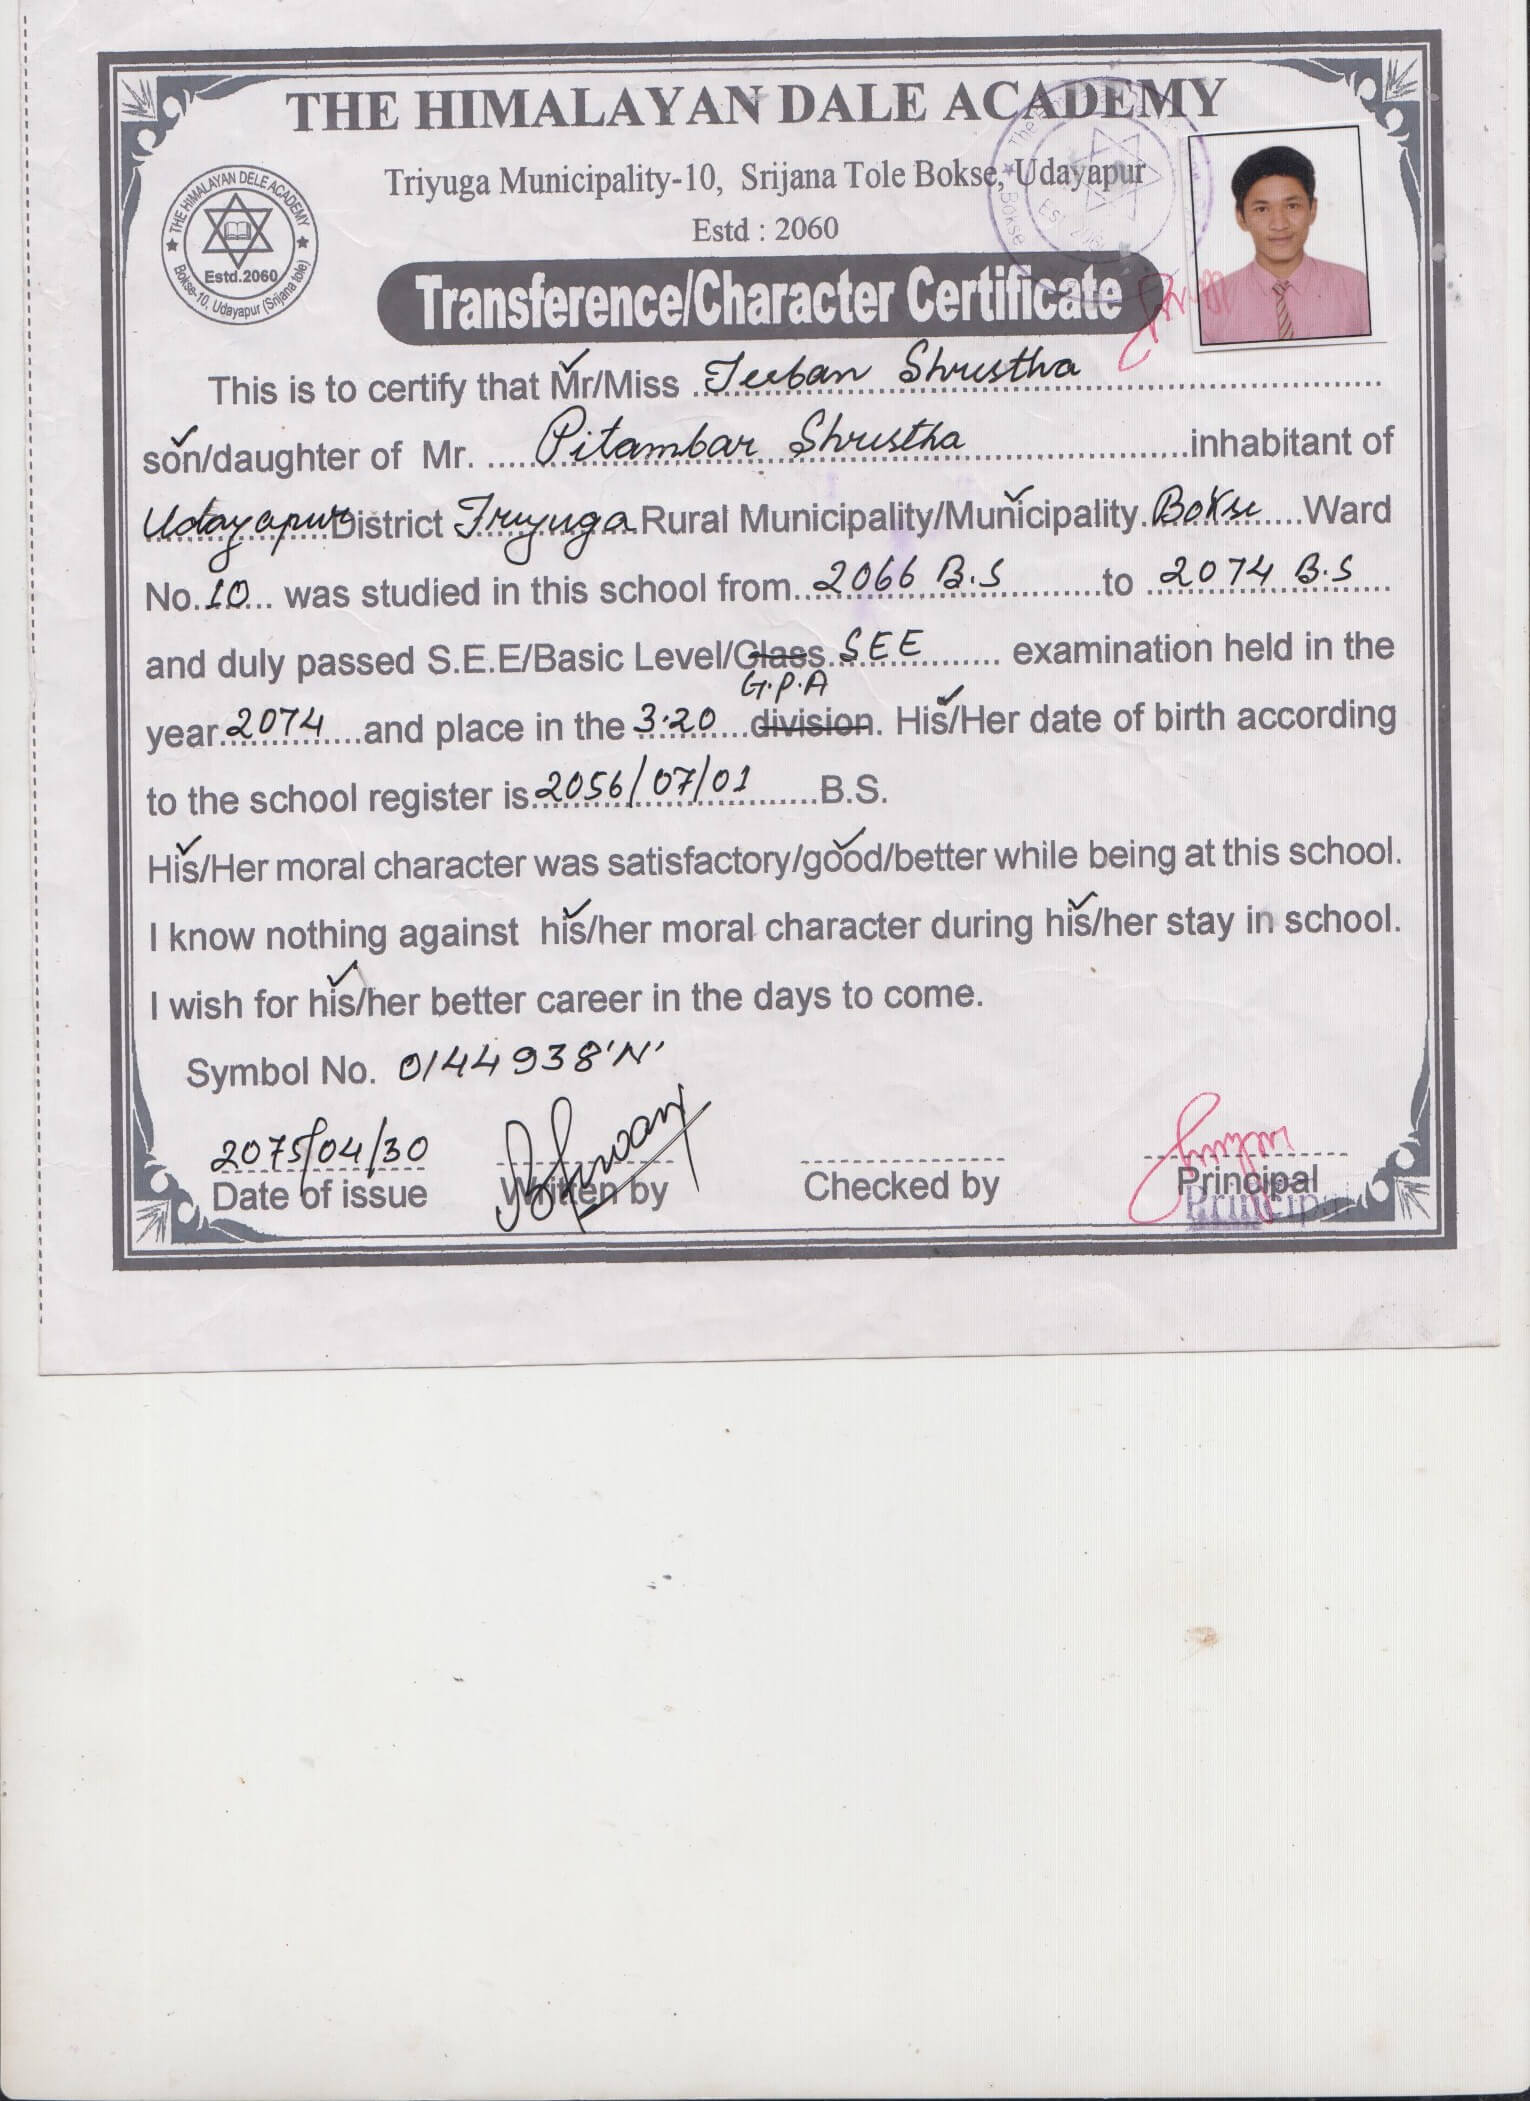 THE HIMALAYAN DALE ACADEMY
Triyuga Municipality-10, Srijana Tole Bokse, Udayapur
Estd : 2060
THE HIMALAYAN DELE ACADEMY
Estd.2060
Bokse-10, Udayapur (Srijana tole)
Transference/Character Certificate
This is to certify that Mr/Miss Jeeban Shrestha
son/daughter of Mr. Pitambar Shrestha inhabitant of
Udayapur District Triyuga Rural Municipality/Municipality. Bokse Ward
No. 10 was studied in this school from 2066 B.S to 2074 B.S
and duly passed S.E.E/Basic Level/Class SEE examination held in the
G.P.A
year 2074 and place in the 3.20 division. His/Her date of birth according
to the school register is 2056/07/01 B.S.
His/Her moral character was satisfactory/good/better while being at this school.
I know nothing against his/her moral character during his/her stay in school.
I wish for his/her better career in the days to come.
Symbol No. 0144938'N'
2075/04/30
Date of issue Written by Checked by Principal
Principal